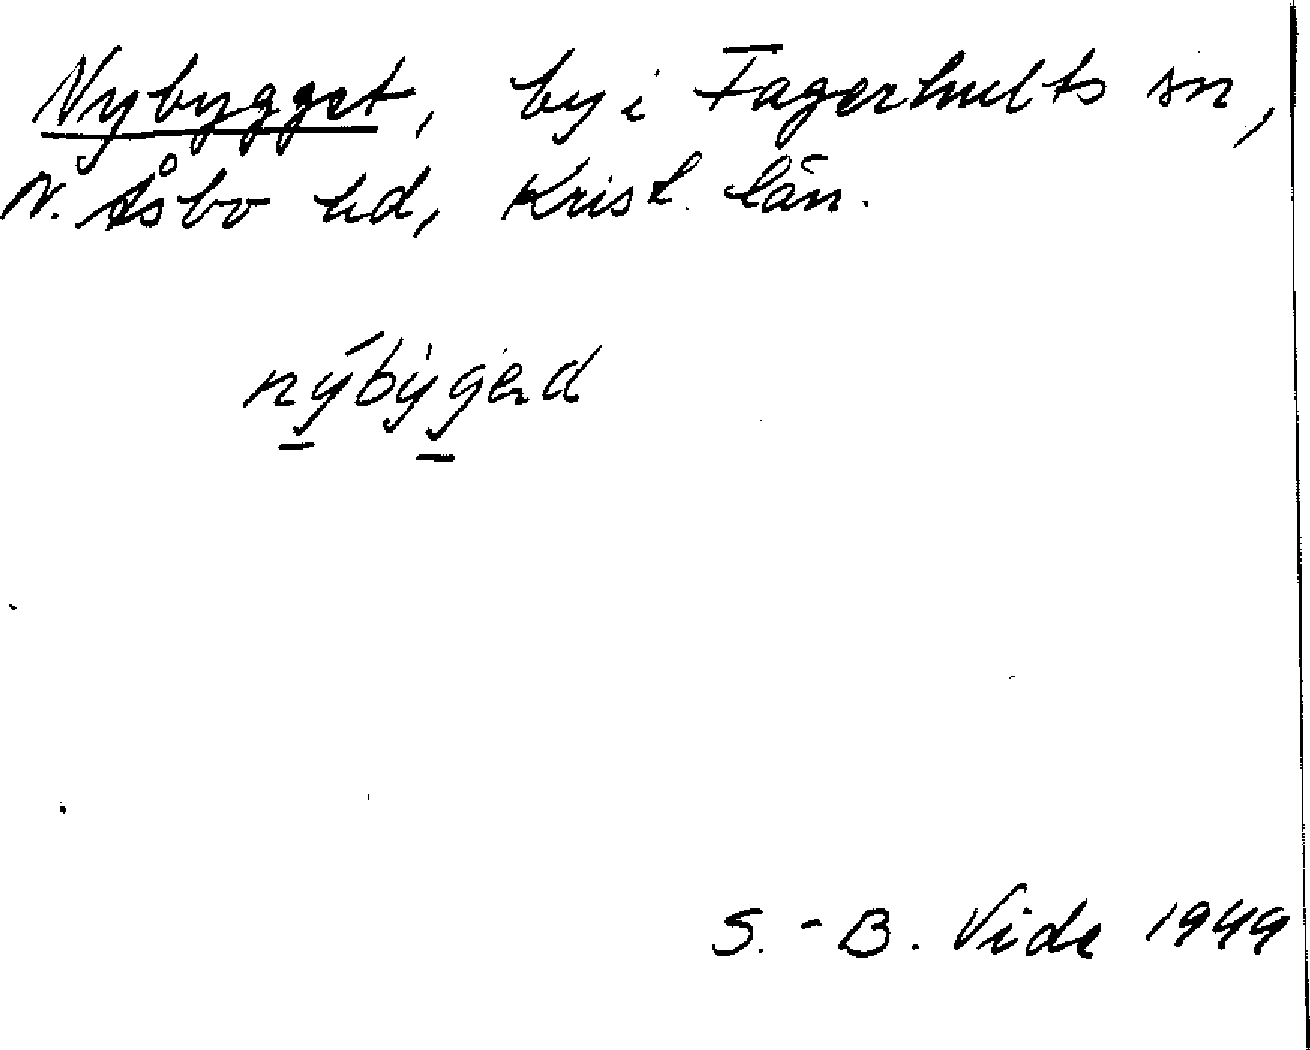 Nybygget, by i Fagerhults sn,
N. Åsbo hd, Krist. län.
nýbỳgəd
S.-B. Vide 1949